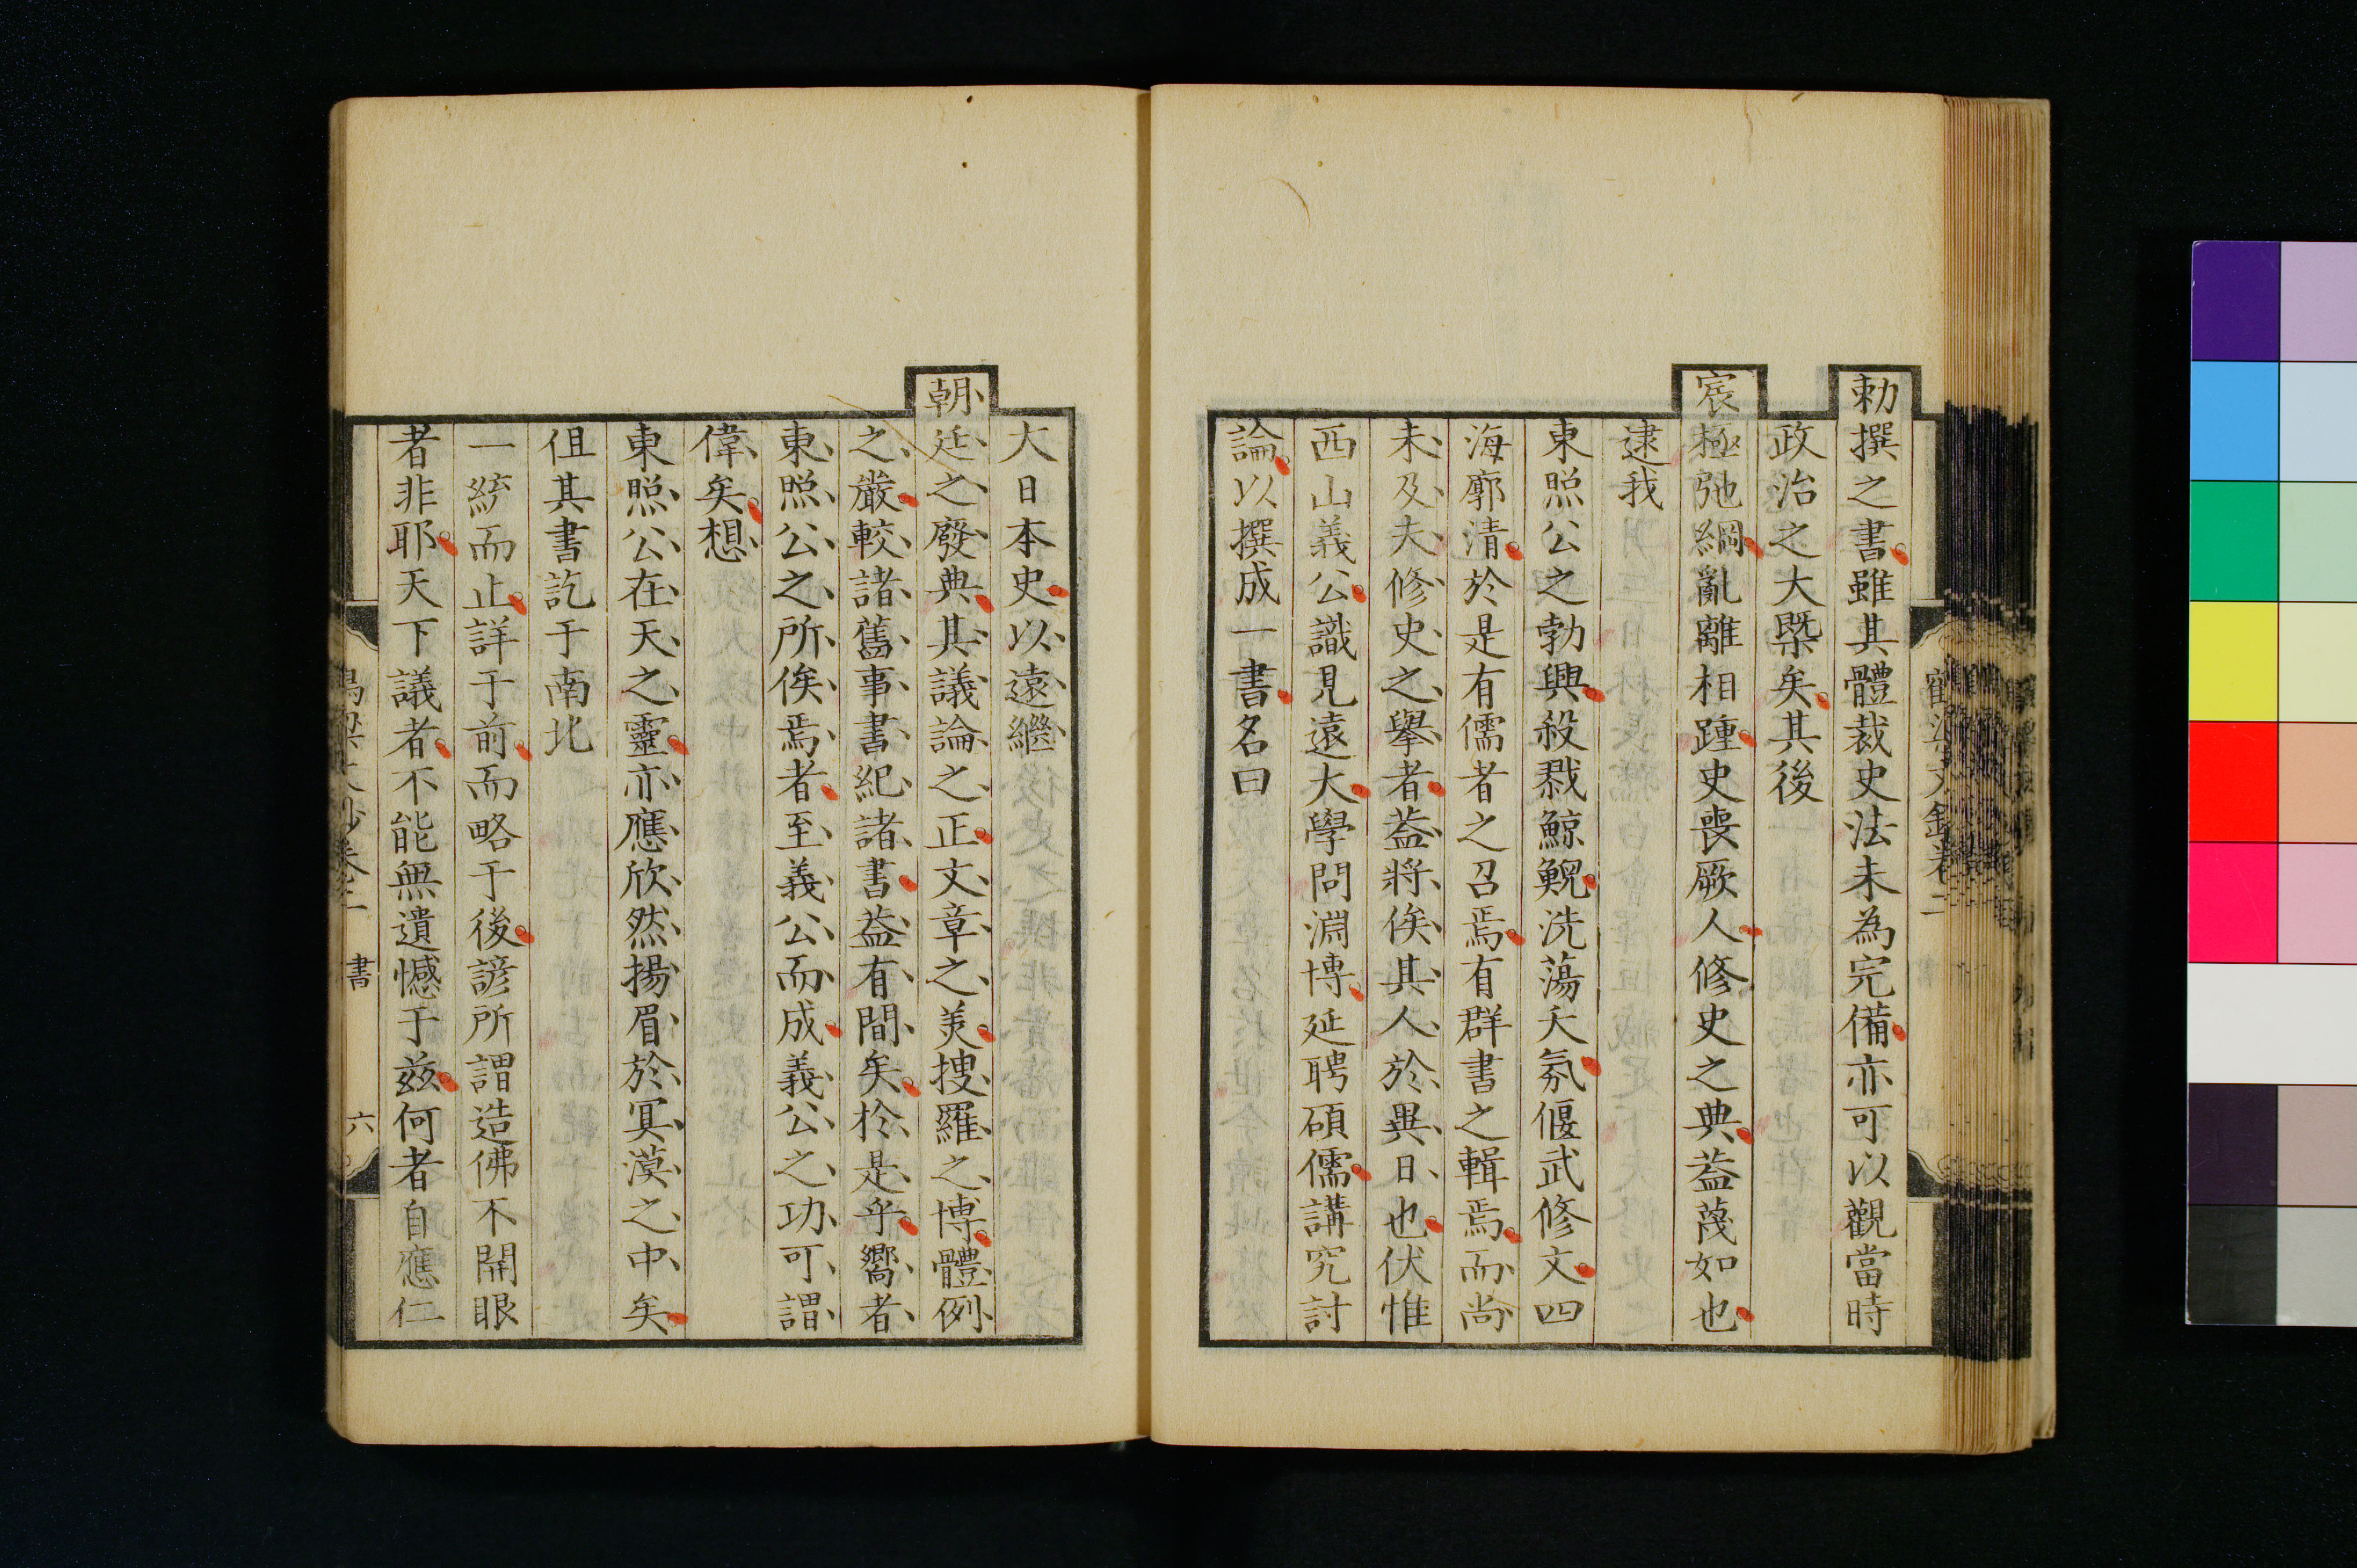 勅撰之書雖其體裁史法未為完備亦可以觀當時
政治之大槩矣其後
宸極弛綱亂離相踵史喪厥人修史之典葢蔑如也
逮我
東照公之勃興殺戮鯨鯢洗蕩夭氛偃武修文四
海廓清於是有儒者之召焉有群書之輯焉而尚
未及夫修史之擧者葢將俟其人於異日也伏惟
西山義公識見遠大學問淵博延聘碩儒講究討
論以撰成一書名曰
大日本史以遠繼
朝廷之廢典其議論之正文章之美捜羅之博體例
之嚴較諸舊事書紀諸書葢有間矣於是乎嚮者
東照公之所俟焉者至義公而成義公之功可謂
偉矣想
東照公在天之靈亦應欣然揚眉於冥漠之中矣
伹其書訖于南北
一統而止詳于前而略于後諺所謂造佛不開眼
者非耶天下議者不能無遺憾于茲何者自應仁
書
六